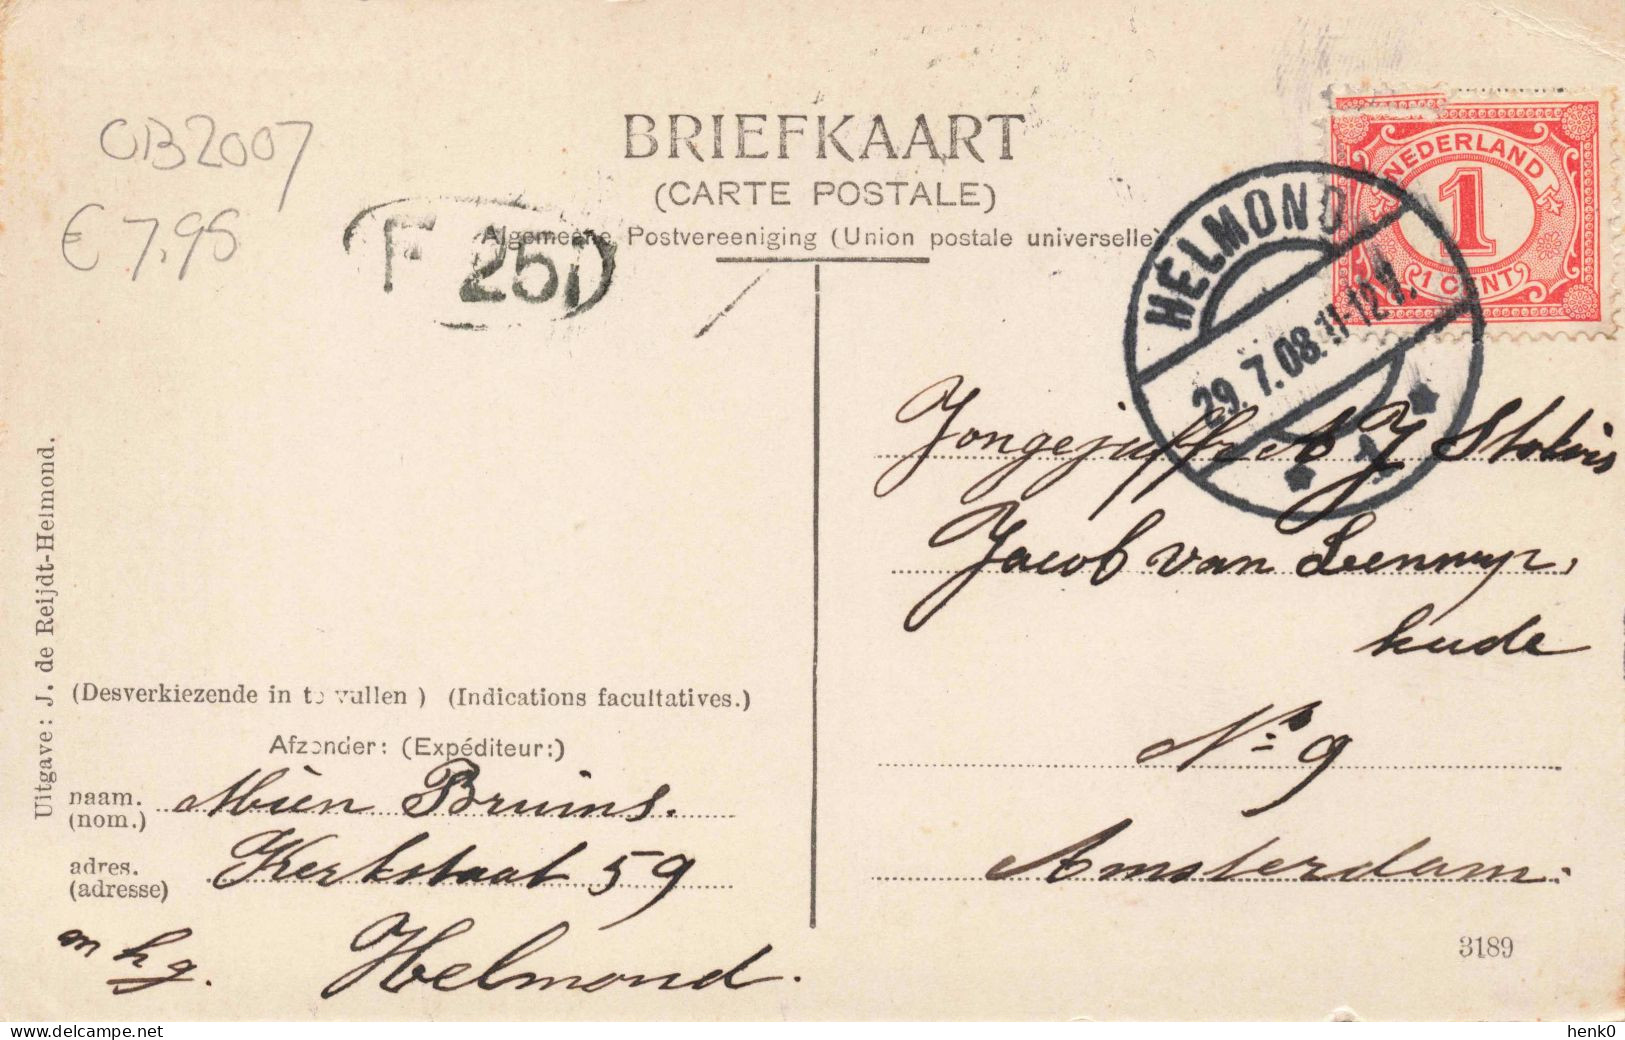 OB2007
€ 7,95
BRIEFKAART
(CARTE POSTALE)
Algemeene Postvereeniging (Union postale universelle)
F 251
NEDERLAND
1
1 CENT
HELMOND
29.7.08.11-12V.
1
Jongejuffr A J Stokvis
Jacob van Lennep,
kade
No 9
Amsterdam.
(Desverkiezende in te vullen) (Indications facultatives.)
Afzender: (Expéditeur:)
naam. Mien Bruins.
(nom.)
adres. Kerkstraat 59
(adresse)
m h g. Helmond.
Uitgave: J. de Reijdt-Helmond.
3189
www.delcampe.net
henk0